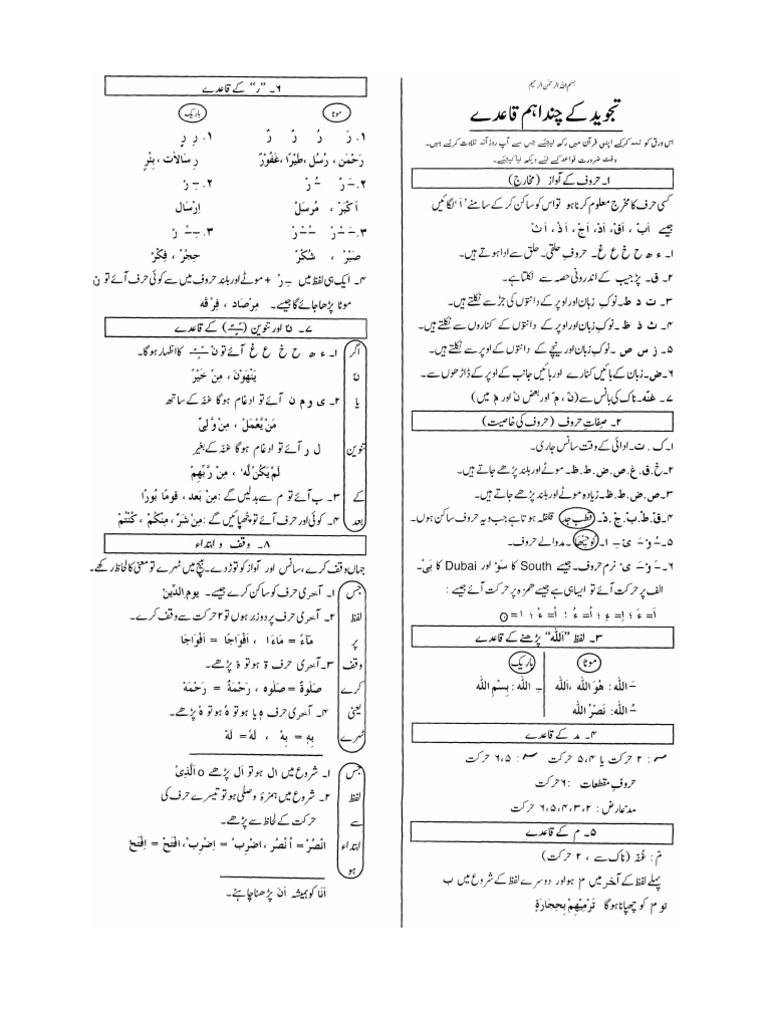 بسم اللہ الرحمٰن الرحیم
تجوید کے چند اہم قاعدے
اس ورق کو تہہ کرکے اپنی قرآن میں رکھ لیجئے جس سے آپ روزآنہ تلاوت کرتے ہیں۔
وقت ضرورت قواعد کے لئے دیکھ لیا کیجئے۔
۱۔ حروف کے آواز (مخارج)
کسی حرف کا مخرج معلوم کرنا ہو تو اس کو ساکن کر کے سامنے 'اَ' لگائیں
جیسے اَبْ ، اَقْ، اَدْ، اَجْ ، اَذْ ، اَثْ
۱۔ ء ھ ح خ ع غ۔ حروفِ حلقی۔ حلق سے ادا ہوتے ہیں۔
۲۔ ق۔ پڑجیب کے اندرونی حصہ سے نکلتا ہے۔
۳۔ ت د ط۔ نوکِ زبان اور اوپر کے دانتوں کی جڑ سے نکلتے ہیں۔
۴۔ ث ذ ظ۔ نوکِ زبان اور اوپر کے دانتوں کے کناروں سے نکلتے ہیں۔
۵۔ ز س ص۔ نوکِ زبان اور نیچے کے دانتوں کے اوپر سے نکلتے ہیں۔
۶۔ ض۔ زبان کے بائیں کنارے اور بائیں جانب کے اوپر کے ڈاڑھوں سے۔
۷۔ غنّہ۔ ناک کی بانس سے (نّ ، مّ اور بعض نْ اور مْ میں)
۲۔ صفاتِ حروف (حروف کی خاصیت)
۱۔ ک . ت۔ ادائی کے وقت سانس جاری۔
۲۔ خ. ق. غ. ص. ض. ط. ظ۔ موٹے اور بلند پڑھے جاتے ہیں۔
۳۔ ص. ض. ط. ظ۔ زیادہ موٹے اور بلند پڑھے جاتے ہیں۔
۴۔ ق. ط. ب. ج. د۔ قطب جد قلقلہ ہوتا ہے جب وہ یہ حروف ساکن ہوں۔
۵۔ ـُ و ـَ ا ـِ ی۔ نُوحِیْھَا۔ مد والے حروف۔
۶۔ ـَ وْ ـَ یْ۔ نرم حروف۔ جیسے South کا سَوْ اور Dubai کا بَیْ۔
الف پر حرکت آئے تو ایسا ہی ہے جیسے ھمزہ پر حرکت آئے جیسے :
اَ= ءَ ؛ اِ= ءِ ؛ اُ= ءُ ؛ اْ= ءْ ؛
۳۔ لفظ "اَللہ" پڑھنے کے قاعدے
موٹا باریک
ـَ اللہ: ھُوَ اللہ ، اَللہ ـِ اللہ: بِسْمِ اللہ
ـُ اللہ: نَصْرُ اللہ
۴۔ مد کے قاعدے
۲ حرکت یا ۴، ۵ حرکت ۵، ۶ حرکت
حروف مقطعات : ۶ حرکت
مدّ عارض: ۲، ۳، ۴، ۵، ۶ حرکت
۵۔ م کے قاعدے
مّ : غُنّہ (ناک سے ، ۲ حرکت)
پہلے لفظ کے آخر میں مْ ہو اور دوسرے لفظ کے شروع میں ب
تو م کو چھپانا ہوگا تَرْمِیْھِمْ بِحِجَارَۃٍ
۶۔ "ر" کے قاعدے
موٹا باریک
۱. رَ رُ رً رٌ ۱. رِ رٍ
رَحْمٰن، رُسُل، طَیْرًا، غَفُوْرٌ رِسَالَات، بِئْرٍ
۲. ـَ رْ ـُ رْ ۲. ـِ رْ
اَکْبَرْ ، مُرسَلْ اِرْسَال
۳. ـَ ـْ رْ ـُ ـْ رْ ۳. ـِ ـْ رْ
صَبْرْ ، شُکْرْ حِجْرْ ، فِکْرْ
۴۔ ایک ہی لفظ میں ـِ رْ + موٹے اور بلند حروف میں سے کوئی حرف آئے تو
موٹا پڑھا جائے گا جیسے۔ مِرْصَاد ، فِرْقَه
۷۔ نْ اور تنوین کے قاعدے
اگر نْ یا تنوین کے بعد
۱۔ ء ھ ح خ ع غ آئے تو نْ کا اظہار ہوگا۔
یَنْهَوْنَ ، مِنْ خَیْرٌ
۲۔ ی و م ن آئے تو ادغام ہوگا غنّہ کے ساتھ
مَنْ یَّعْمَلْ ، مِنْ وَّلِیٍّ
ل ر آئے تو ادغام ہوگا غنّہ کے بغیر
لَمْ یَکُنْ لَّهٗ ، مِنْ رَّبِّهِمْ
۳۔ ب آئے تو م سے بدلیں گے : مِنْ بَعْد ، قَومًا بُورًا
۴۔ کوئی اور حرف آئے تو چھپائیں گے : مِنْ شَرِّ ، مِنْکُمْ ، کُنْتُمْ
۸۔ وقف و ابتداء
جہاں وقف کرے، سانس اور آواز کو توڑ دے۔ بیچ میں ٹہرے تو معنی کا لحاظ رکھے۔
جس لفظ پر وقف کرے یعنی ٹہرے
۱۔ آخری حرف کو ساکن کرے جیسے۔ یومِ الدِّیْنْ
۲۔ آخری حرف پر دو زبر ہوں تو ۲ حرکت سے وقف کرے۔
مَآءً = مَاءَ ا ، اَفْوَاجًا = اَفْوَاجَا
۳۔ آخری حرف ة ہو تو ہْ پڑھے۔
صَلٰوۃٌ = صَلٰوہ ، رَحْمَۃٌ = رَحْمَهْ
۴۔ آخری حرف ہٖ یا ہٗ ہو تو ہْ پڑھے۔
بِهٖ = بِهْ ، لَهٗ = لَهْ
جس لفظ سے ابتداء ہو
۱۔ شروع میں ال ہو تو اَل پڑھے o اَلَّذِیْ
۲۔ شروع میں ہمزۂ وصلی ہو تو تیسرے حرف کی
حرکت کے لحاظ سے پڑھے۔
انْصُرْ = اُنْصُر ، اضْرِبْ = اِضْرِب ، افْتَحْ = اِفْتَحْ
اَنَا کو ہمیشہ اَنَ پڑھنا چاہئے۔